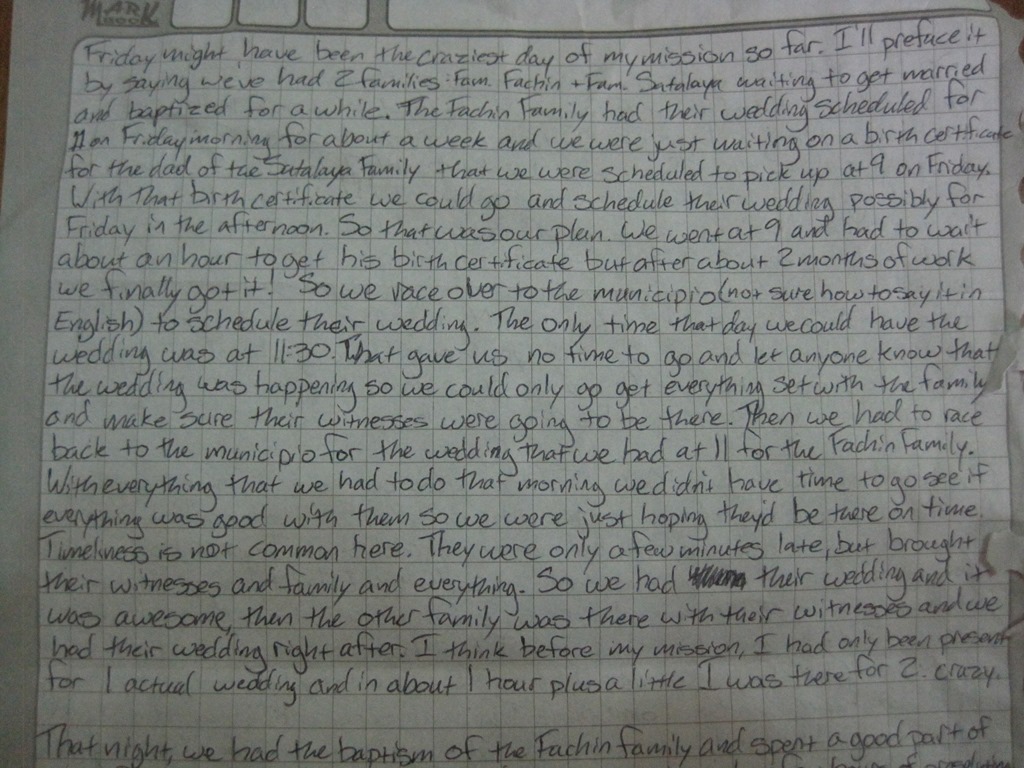 MARK
BOOK
Friday might have been the craziest day of my mission so far. I'll preface it
by saying we've had 2 families: Fam. Fachin + Fam. Satalaya waiting to get married
and baptized for a while. The Fachin Family had their wedding scheduled for
11 on Friday morning for about a week and we were just waiting on a birth certificate
for the dad of the Satalaya Family that we were scheduled to pick up at 9 on Friday.
With that birth certificate we could go and schedule their wedding possibly for
Friday in the afternoon. So that was our plan. We went at 9 and had to wait
about an hour to get his birth certificate but after about 2 months of work
we finally got it! So we race over to the municipio (not sure how to say it in
English) to schedule their wedding. The only time that day we could have the
wedding was at 11:30. That gave us no time to go and let anyone know that
the wedding was happening so we could only go get everything set with the family
and make sure their witnesses were going to be there. Then we had to race
back to the municipio for the wedding that we had at 11 for the Fachin Family.
With everything that we had to do that morning we didn't have time to go see if
everything was good with them so we were just hoping they'd be there on time.
Timeliness is not common here. They were only a few minutes late, but brought
their witnesses and family and everything. So we had their wedding and it
was awesome, then the other family was there with their witnesses and we
had their wedding right after. I think before my mission, I had only been present
for 1 actual wedding and in about 1 hour plus a little I was there for 2. crazy.
That night, we had the baptism of the Fachin family and spent a good part of